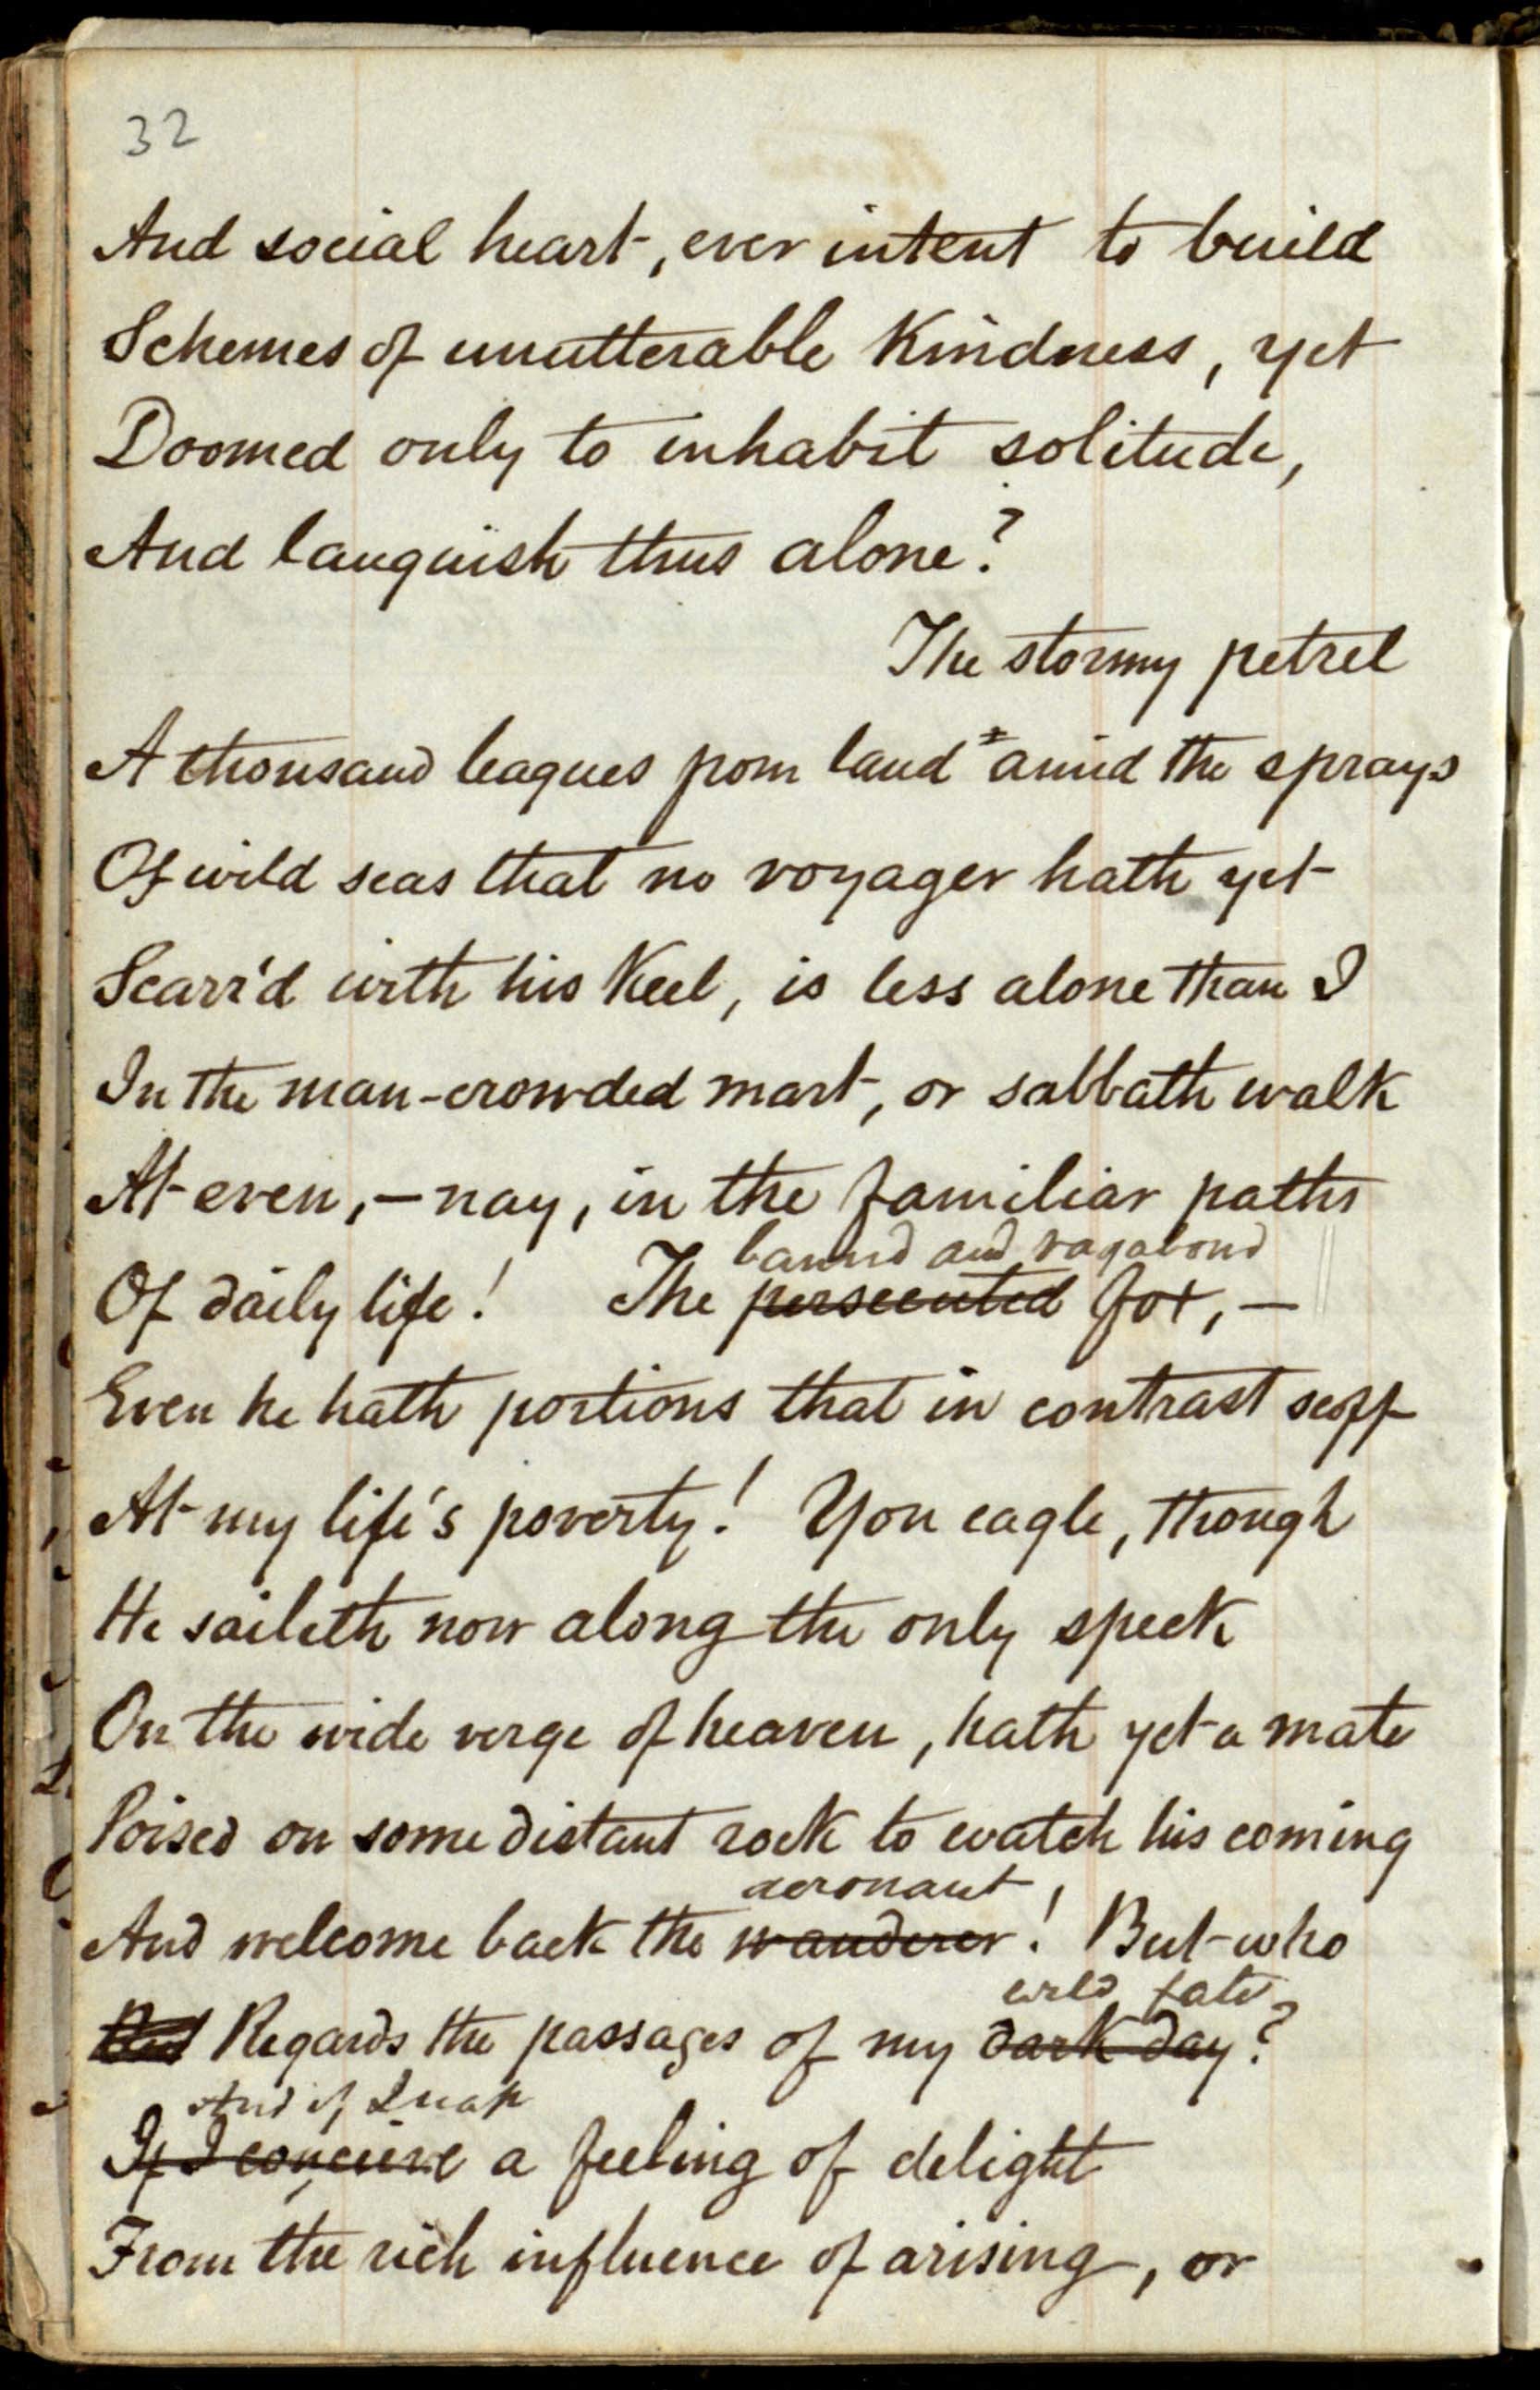 32
And social heart, ever intent to build
Schemes of unutterable Kindness, yet
Doomed only to inhabit solitude,
And languish thus alone?
The stormy petrel
A thousand leagues from land amid the sprays
Of wild seas that no voyager hath yet
Scarr'd with his Keel, is less alone than I
In the man-crowded mart, or sabbath walk
At even, – nay, in the familiar paths
bann'd and vagabond
Of daily life! The persecuted fox, –
Even he hath portions that in contrast scoff
At my life's poverty! Yon eagle, though
He saileth now along the only speck
On the wide verge of heaven, hath yet a mate
Poised on some distant rock to watch his coming
aeronaut,
And welcome back the wanderer! But who
wild fate?
Regards the passages of my dark day?
And if I
If I conceive a feeling of delight
From the rich influence of arising, or